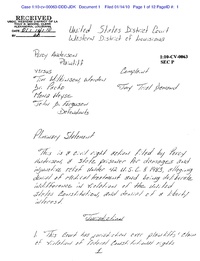 Case 1:10-cv-00063-DDD-JDK Document 1 Filed 01/14/10 Page 1 of 12 PageID #: 1
RECEIVED
United States District Court
Western District of Louisiana
Percy Anderson
Plaintiff
1:10-CV-0063
SEC P
versus
Complaint
Tim Wilkinson Warden
Dr. Pacho
Jury Trial Demand
Mona Heyse
John D. Ferguson
Defendants
Plimary Statement
This is a civil right action filed by Percy
Anderson a state prisoner for damages and
injuntive relief under 42 U.S.C § 1983, alleging
denial of medical treatment and being deliberate
indifference in violation of the United
states Constitution and denial of a liberty
interest.
Jurisdiction
1. This Court has jurisdiction over plaintiffs' claim
of violation of Federal Constitutional rights
1